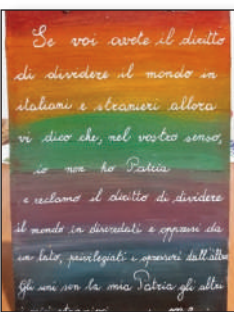 Se voi avete il diritto
di dividere il mondo in
italiani e stranieri allora
vi dico che, nel vostro senso,
io non ho Patria
e reclamo il diritto di dividere
il mondo in diseredati e oppressi da
un lato, privilegiati e oppressori dall'altro
Gli uni son la mia Patria gli altri
i miei stranieri